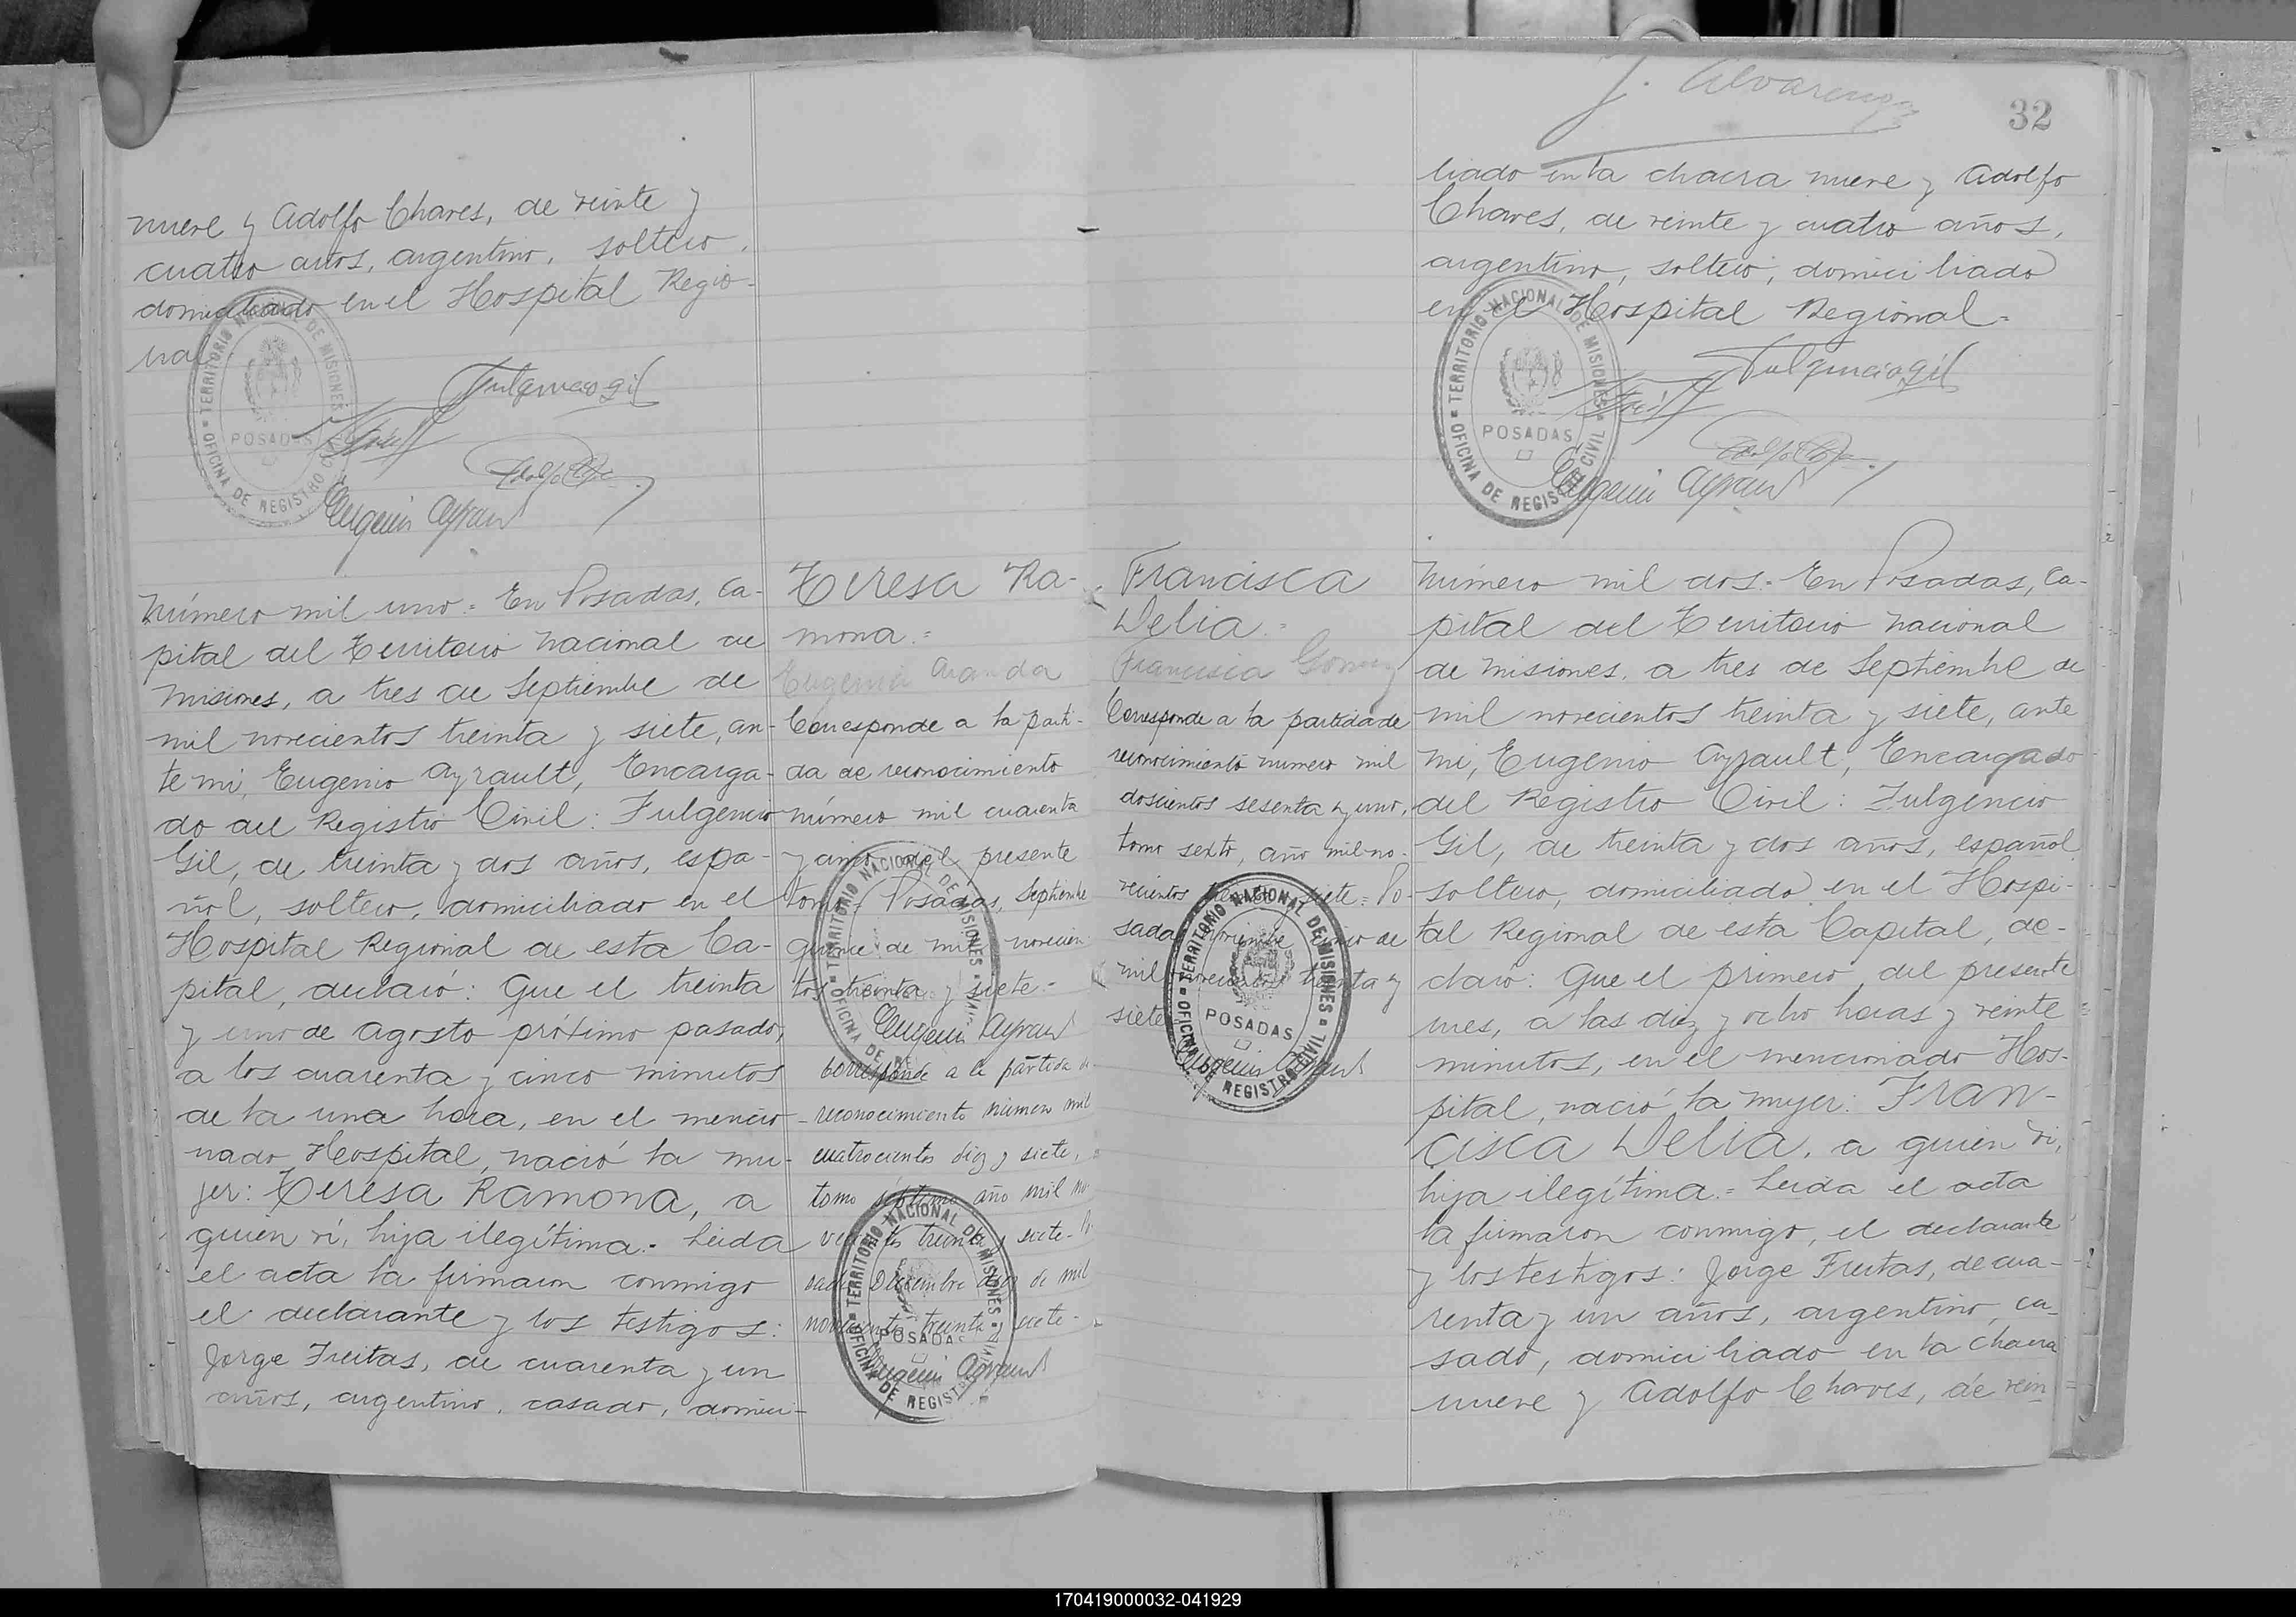 nueve y Adolfo Chaves, de veinte y
cuatro años, argentino, soltero,
domiciliado en el Hospital Regio-
nal
TERRITORIO NACIONAL DE MISIONES
POSADAS
OFICINA DE REGISTRO CIVIL
Fulgencio Gil
Eugenio Ayrault
Número mil uno = En Posadas, Ca-
pital del Territorio Nacional de
Misiones, a tres de Septiembre de
mil novecientos treinta y siete, an-
te mí, Eugenio Ayrault, Encarga-
do del Registro Civil: Fulgencio
Gil, de treinta y dos años, espa-
ñol, soltero, domiciliado en el
Hospital Regional de esta Ca-
pital, declaró: Que el treinta
y uno de agosto próximo pasado,
a los cuarenta y cinco minutos
de la una hora, en el mencio-
nado Hospital, nació la mu-
jer: Teresa Ramona, a
quien ví, hija ilegítima.- Leida
el acta la firmaron conmigo
el declarante y los testigos:
Jorge Freitas, de cuarenta y un
años, argentino, casado, domici-
Teresa Ra-
mona.=
Eugenia Aranda
Corresponde a la parti-
da de reconocimiento
número mil cuarenta
y cinco del presente
tomo Posadas, Septiembre
quince de mil novecien
tos treinta y siete.-
Eugenio Ayrault
TERRITORIO NACIONAL DE MISIONES
Corresponde a la partida de
reconocimiento número mil
cuatrocientos diez y siete,
tomo séptimo año mil no-
vecientos treinta y siete- Po
sadas Diciembre de mil
novecientos treinta y siete-
Eugenio Ayrault
TERRITORIO NACIONAL DE MISIONES
POSADAS
OFICINA DE REGISTRO CIVIL
Francisca
Delia.=
Francisca Gomez
Corresponde a la partida de
reconocimiento numero mil
doscientos sesenta y uno,
tomo sexto, año mil no-
vecientos treinta y siete = Po-
sadas de
mil novecientos treinta y
siete
Eugenio Ayrault
TERRITORIO NACIONAL DE MISIONES
POSADAS
OFICINA DE REGISTRO CIVIL
J. Alvarenga
32
liado en la chacra nueve y Adolfo
Chaves, de veinte y cuatro años,
argentino, soltero, domiciliado
en el Hospital Regional.
TERRITORIO NACIONAL DE MISIONES
POSADAS
OFICINA DE REGISTRO CIVIL
Fulgencio Gil
Eugenio Ayrault
Número mil dos.= En Posadas, Ca-
pital del Territorio Nacional
de Misiones, a tres de Septiembre de
mil novecientos treinta y siete, ante
mí, Eugenio Ayrault, Encargado
del Registro Civil: Fulgencio
Gil, de treinta y dos años, español
soltero, domiciliado en el Hospi-
tal Regional de esta Capital, de-
claró: Que el primero del presente
mes, a las diez y ocho horas y veinte
minutos, en el mencionado Hos-
pital, nació la mujer: Fran-
cisca Delia, a quien ví,
hija ilegítima.= Leida el acta
la firmaron conmigo, el declarante
y los testigos: Jorge Freitas, de cua-
renta y un años, argentino, ca-
sado, domiciliado en la chacra
nueve y Adolfo Chaves, de vein
170419000032-041929